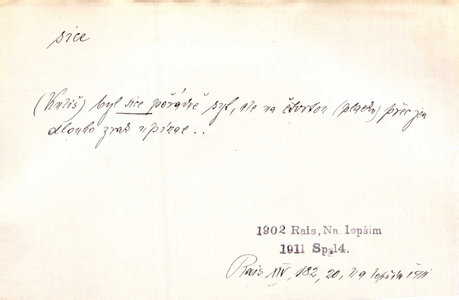 sice
(Kališ) byl sice pořádně syt, ale na čtvrtou (placku) přec jen
dlouho zrak upíral..
1902 Rais, Na lepším
1911 Sp.14.
Rais XIV, 182, 20, Na lepším 1911